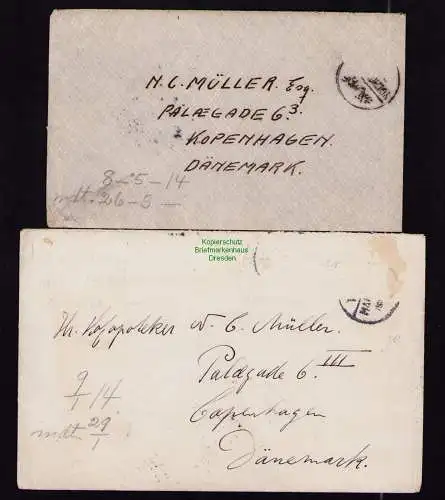 N. C. MÜLLER. Esq.
PALÆGADE 6.3.
KOPENHAGEN.
DÄNEMARK.
8-5-14
mdt. 26-5-
Kopierschutz
Briefmarkenhaus
Dresden
Hr. Hofapotheker N. C. Müller.
Palægade 6. III
Copenhagen
Dänemark.
9/1 14
mdt. 29/1